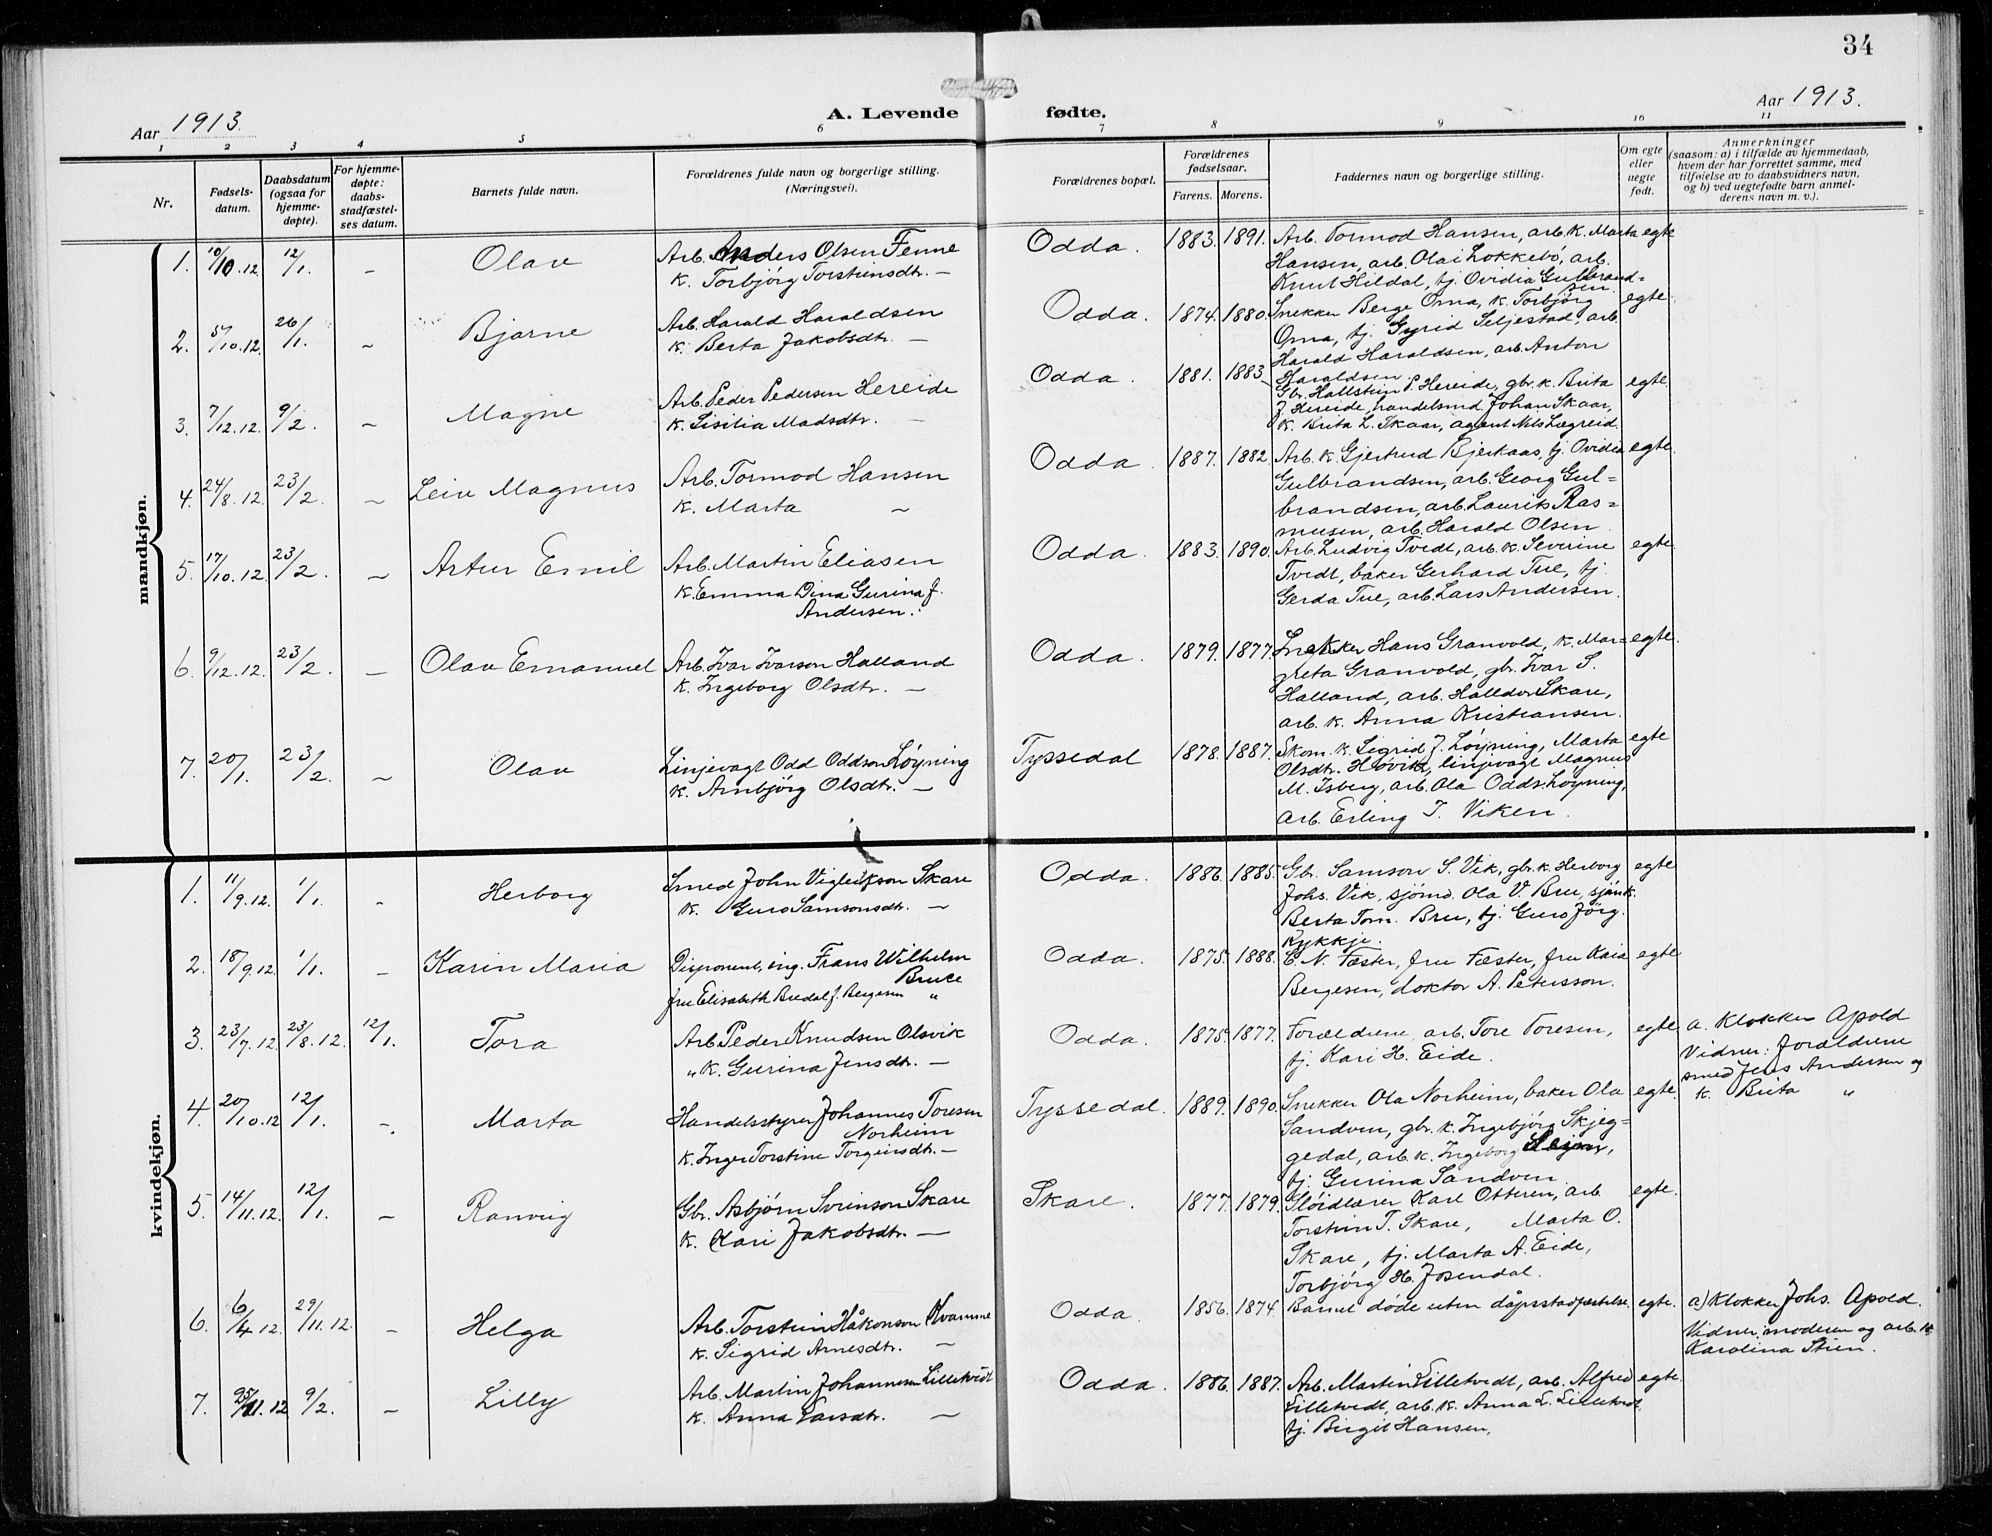 34
Aar 1913.
A. Levende fødte.
Aar 1913.
1 2 3 4 5 6 7 8 9 10 11
Nr.
Fødsels-
datum.
Daabsdatum
(ogsaa for
hjemme-
døpte).
For hjemme-
døpte:
daabs-
stadfæstel-
ses datum.
Barnets fulde navn.
Forældrenes fulde navn og borgerlige stilling.
(Næringsvei).
Forældrenes bopæl.
Forældrenes
fødselsaar.
Farens. Morens.
Faddernes navn og borgerlige stilling.
Om egte
eller
uegte
født.
Anmerkninger
(saasom: a) i tilfælde av hjemmedaab,
hvem der har forrettet samme, med
tilføielse av to daabsvidners navn,
og b) ved uegtefødte barn anmel-
derens navn m. v.).
mandkjøn.
1. 10/10.12 12/1. - Olav
Arb. Anders Olsen Fenne
k. Torbjörg Torsteinsdtr. —
Odda. 1883. 1891.
Arb. Tormod Hansen, arb. k. Marta
Hansen, arb. Olai Lokkebö, arb.
Knut Hildal, tj. Ovidia Gulbrand=
sen.
egte
2. 5/10.12. 26/1. - Bjarne
Arb. Harald Haraldsen
k. Berta Jakobsdtr. —
Odda. 1874. 1880.
Snekker Berge Oma, k. Torbjörg
Oma, tj. Gyrid Seljestad, arb.
Harald Haraldsen, arb. Anton
Haraldsen.
egte
3. 7/12.12. 9/2. - Magne
Arb. Peder Pedersen Hereide
k. Sisilia Madsdtr. —
Odda. 1881. 1883.
Gbr. Hallstein P. Hereide, gbr. k. Brita
J. Hereide, handelsmd. Johan Skaar,
k. Brita L. Skaar, agent Nils Lægreid.
egte.
4. 24/8.12. 23/2. - Leiv Magnus
Arb. Tormod Hansen
k. Marta —
Odda. 1887. 1882
Arb. k. Gjertrud Bjerkaas, tj. Ovidia
Gulbrandsen, arb. Georg Gul=
brandsen, arb. Laurits Ras=
musen, arb. Harald Olsen.
egte.
5. 17/10.12. 23/2. - Artur Emil
Arb. Martin Eliasen
k. Emma Dina Gurina f.
Andersen.
Odda. 1883. 1890.
Arb. Ludvig Tvedt, arb. k. Severine
Tvedt, baker Gerhard Tue, tj.
Gerda Tue, arb. Lars Andersen.
egte.
6. 9/12.12. 23/2. - Olav Emanuel
Arb. Ivar Ivarson Halland
k. Ingeborg Olsdtr. —
Odda. 1879. 1877.
Snekker Hans Granvold, k. Mar=
greta Granvold, gbr. Ivar S.
Halland, arb. Halldor Skare,
arb. k. Anna Kristiansen.
egte.
7. 20/1. 23/2. - Olav
Linjevagt Odd Oddson Löyning
k. Arnbjörg Olsdtr. —
Tyssedal 1878. 1887.
Skom. k. Sigrid J. Löyning, Marta
Olsdtr. Hovik, linjevagt Magnus
M. Isberg, arb. Ola Odds. Löyning,
arb. Erling J. Viken.
egte
kvindekjøn.
1. 11/9.12. 1/1. - Herborg
Smed John Vigleikson Skare
k. Guro Samsonsdtr. —
Odda. 1886. 1885.
Gbr. Samson S. Vik, gbr. k. Herborg
Johs. Vik, sjömd. Ola V. Bru, sjömk.
Berta Tom. Bru, tj. Guro Jörg.
Kykkje.
egte
2. 18/9.12. 1/1. - Karin Maria
Disponent, ing. Frans Wilhelm
Bruce
fru Elisabeth Bredal f. Bergesen "
Odda. 1875. 1888.
C. N. Fæster, fru Fæster, fru Kaia
Bergesen, doktor A. Petersson.
egte
3. 23/7.12 23/8.12. 12/1. Tora
Arb. Peder Knudsen Olsvik
" k. Gurina Jensdtr. —
Odda. 1875. 1877.
Forældrene, arb. Tore Toresen,
tj. Kari H. Eide.
egte
a. Klokker Apold
Vidner: Forældrene
smed Jens Andersen og
k. Brita "
4. 20/10.12 12/1. - Marta
Handelsstyrer Johannes Toresen
Norheim
k. Inger Torstine Torgeirsdtr. —
Tyssedal. 1889. 1890.
Snekker Ola Norheim, baker Ola
Sandven, gbr. k. Ingebjörg Skjeg=
gedal, arb. k. Ingeborg
tj. Gurina Sandven.
egte.
5. 14/11.12. 12/1. - Ranveig
Gbr. Asbjørn Sveinson Skare
k. Kari Jakobsdtr. —
Skare. 1877. 1879.
Slöidlærer Karl Otteren, arb.
Torstein T. Skare, Marta O.
Skare, tj. Marta A. Eide,
Torbjörg H. Josendal.
egte.
6. 6/4.12. 29/11.12. - Helga
Arb. Torstein Håkonson Kvamme
k. Sigrid Arnesdtr. —
Odda. 1856. 1874.
Barnet döde uten dåpsstadfæstelse.
egte.
a) Klokker Johs. Apold.
Vidner: moderen og arb. k.
Karolina Stien.
7. 25/11.12 9/2. - Lilly
Arb. Martin Johannesen Lilletvedt
k. Anna Larsdtr. —
Odda. 1886. 1887.
Arb. Martin Lilletvedt, arb. Alfred
Lilletvedt, arb. k. Anna L. Lilletvedt,
tj. Birgit Hansen,
egte.